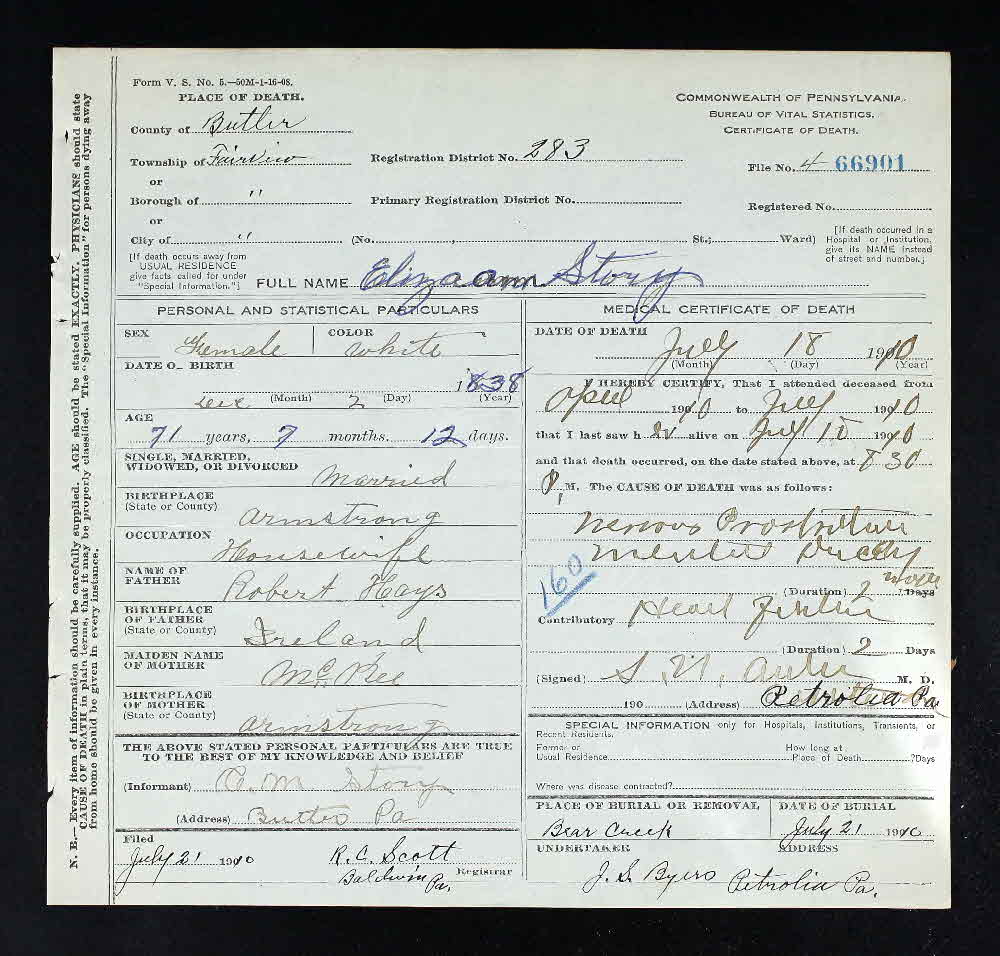 Form V. S. No. 5.—50M-1-16-08.
PLACE OF DEATH.
County of Butler
Township of Fairview
or
Borough of "
or
City of "
[If death occurs away from USUAL RESIDENCE give facts called for under "Special Information."]
COMMONWEALTH OF PENNSYLVANIA.
BUREAU OF VITAL STATISTICS.
CERTIFICATE OF DEATH.
Registration District No. 283
File No. 4 66901
Primary Registration District No.
Registered No.
(No. , St.; Ward)
[If death occurred in a Hospital or Institution, give its NAME instead of street and number.]
FULL NAME Eliza ann Story
PERSONAL AND STATISTICAL PARTICULARS
SEX Female
COLOR White
DATE OF BIRTH
Dec (Month) 2 (Day) 1838 (Year)
AGE
71 years, 7 months. 12 days.
SINGLE, MARRIED, WIDOWED, OR DIVORCED
Married
BIRTHPLACE (State or County)
Armstrong
OCCUPATION
Housewife
NAME OF FATHER
Robert Hays
BIRTHPLACE OF FATHER (State or County)
Ireland
MAIDEN NAME OF MOTHER
McKee
BIRTHPLACE OF MOTHER (State or County)
Armstrong
THE ABOVE STATED PERSONAL PARTICULARS ARE TRUE TO THE BEST OF MY KNOWLEDGE AND BELIEF
(Informant) C. M Story
(Address) Butler Pa
Filed
July 21 1910 R. C. Scott
Baldwin Pa. Registrar
MEDICAL CERTIFICATE OF DEATH
DATE OF DEATH
July (Month) 18 (Day) 1910 (Year)
I HEREBY CERTIFY, That I attended deceased from
April 1910 to July 1910
that I last saw her alive on July 18 1910
and that death occurred, on the date stated above, at 8 30
P, M. The CAUSE OF DEATH was as follows:
Nervous Prostration
160
(Duration) 2 Days
Contributory Heart
(Duration) 2 Days
(Signed) S. M. M. D.
190 (Address) Petrolia Pa
SPECIAL INFORMATION only for Hospitals, Institutions, Transients, or Recent Residents.
Former or Usual Residence
How long at Place of Death ?Days
Where was disease contracted?
PLACE OF BURIAL OR REMOVAL
Bear Creek
DATE OF BURIAL
July 21 1910
UNDERTAKER
J. S. Byers
ADDRESS
Petrolia Pa.
N. B.—Every item of information should be carefully supplied. AGE should be stated EXACTLY. PHYSICIANS should state
CAUSE OF DEATH in plain terms, that it may be properly classified. The "Special Information" for persons dying away
from home should be given in every instance.